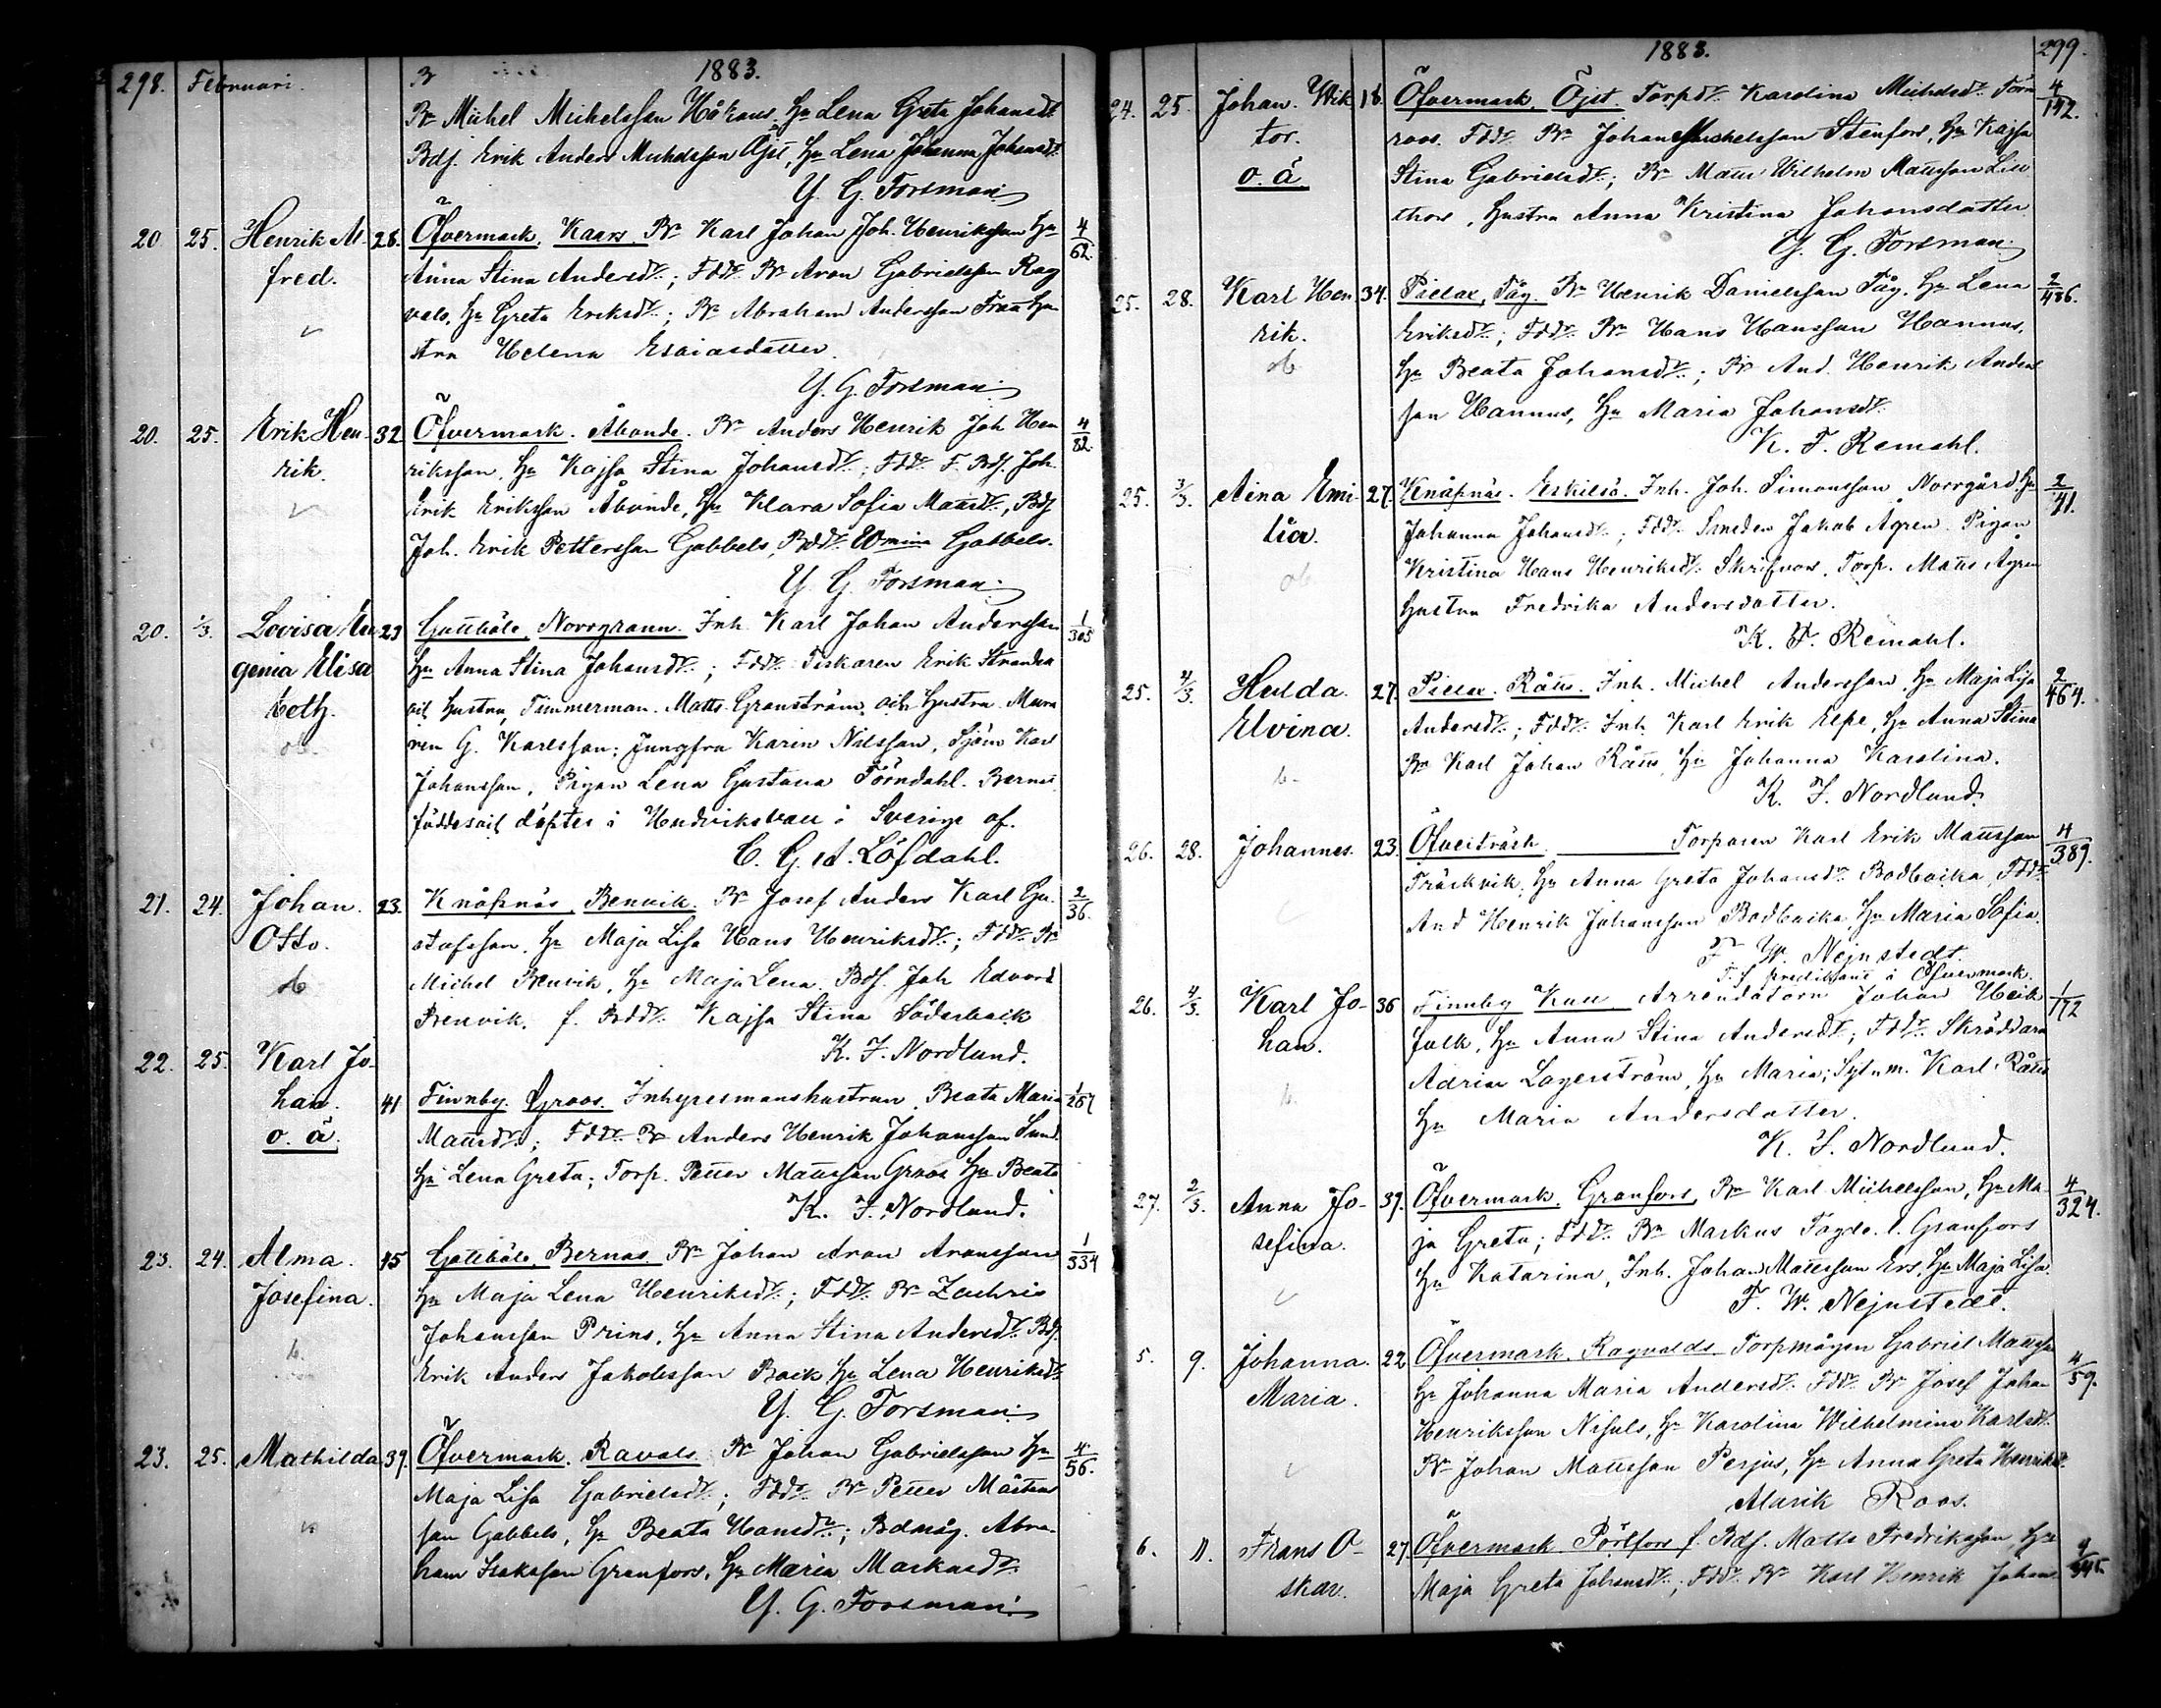 298. Februari. 1883.
Br Michel Michelsson Håkans, Hu Lena Greta Johansdr
Bdj. Erik Anders Michelsson Öjst, Hu Lena Johanna Johansdr
Y. G. Forsman.
20 25. Henrik Al- 28. Öfvermark. Kaars. Br Karl Johan Joh. Henriksson Hu 4/62.
fred. Anna Stina Andersdr.; Fddr. Br Aron Gabrielsson Rag
vals, Hu Greta Eriksdr.; Br Abraham Andersson Fran Hu
stru Helena Esaiasdatter.
Y. G. Forsman.
20. 25. Erik Hen- 32 Öfvermark. Åbonde. Br Anders Henrik Joh Hen 4/82.
rik. riksson, Hu Kajsa Stina Johansdr.; Fddr. F. Bdj. Joh.
Erik Eriksson Åbonde, Hu Klara Sofia Mattsdr., Bdj
Joh. Erik Pettersson Gabbels, Bddr. Wmina Gabbels.
Y. G. Forsman.
20. 1/3. Lovisa Eu- 23 Gottböle, Norrgrann. Inh. Karl Johan Andersson 1/305
genia Elisa Hu Anna Stina Johansdr.; Fddr. Fiskaren Erik Strandin
beth. och hustru, Timmerman. Matts Granström och hustru. Mura
ren G. Karlsson; Jungfru Karin Nilsson, Sjöm Karl
Johansson, Pigan Lena Gustava Törndahl. Barnet
föddes och döptes i Hudviksvall i Sverige af.
C. G. A. Löfdahl.
21. 24. Johan. 23. Knåpnäs, Benvik. Br Josef Anders Karl Gu- 2/36.
Otto. stafsson, Hu Maja Lisa Hans Henriksdr.; Fddr. Br
ob Michel Benvik, Hu Maja Lena. Bdj. Joh Edvard
Benvik, f. Bddr. Kajsa Stina Söderback
K. J. Nordlund.
22. 25. Karl Jo-
han. 41 Finnby. Groos. Inhysesmanshustrun Beata Maria 1/267
o. ä. Mattsdr.; Fddr. Br Anders Henrik Johansson Sund.
Hu Lena Greta; Torp. Petter Mattsson Groos Hu Beata
K. J. Nordlund.
23. 24. Alma. 45 Gottböle, Bernas. Br Johan Aron Aronsson 1/334
Josefina. Hu Maja Lena Henriksdr.; Fddr. Br Zachris
Johansson Prins, Hu Anna Stina Andersdr. Bdj.
Erik Anders Jakobsson Back Hu Lena Henriksdr
Y. G. Forsman.
23. 25. Mathilda 39. Öfvermark. Ravals. Br Johan Gabrielsson Hu 4/56.
Maja Lisa Gabrielsdr.; Fddr. Br Petter Mårtens
son Gabbels, Hu Beata Hansdr.; Bdmåg. Abra-
ham Isaksson Granfors, Hu Maria Markusdr.
Y. G. Forsman.
1883. 299.
24. 25. Johan Wik 18. Öfvermark. Öjst. Torpdr. Karolina Michelsdr. Törn 4/142.
tor. roos. Fddr. Br Johan Michelsson Stenfors, Hu Kajsa
o. ä Stina Gabrielsdr.; Br Matts Wilhelm Mattsson Lill
thors, hustru Anna Kristina Johansdatter
Y. G. Forsman.
25. 28. Karl Hen 34. Pielax, Tåg. Br Henrik Danielsson Tåg. Hu Lena 2/486.
rik. Eriksdr.; Fddr. Br Hans Hansson Hannus,
ob Hu Beata Johansdr.; Br And. Henrik Anders
son Hannus, Hu Maria Johansdr.
K. F. Remahl.
25. 3/3. Aina Emi- 27. Knåpnäs. Eskilsö. Inh. Joh. Simonsson Norrgård Hu 2/41.
lia. Johanna Johansdr.; Fddr. Smeden Jakob Ågren. Pigan
ob Kristina Hans Henriksdr. Skrifvars, Torp. Matts Ågren
hustru Fredrika Andersdotter.
K. F. Remahl.
25. 4/3. Hulda. 27. Pielax. Råtts. Inh. Michel Andersson Hu Maja Lisa 2/464.
Elvina. Andersdr.; Fddr. Inh. Karl Erik Elpe, Hu Anna Stina
Br Karl Johan Råtts, Hu Johanna Karolina.
K. J. Nordlund.
26. 28. Johannes. 23. Öfverträsk. Torparen Karl Erik Mattsson 4/389.
Träskvik, Hu Anna Greta Johansdr. Bodbacka, Fddr.
And Henrik Johansson Bodbacka, Hu Maria Sofia.
F. W. Nejnstedt.
T. f. predikant i Öfvermark.
26. 4/3. Karl Jo- 36 Finnby Arrendatorn Johan Heik 1/172
han. falk, Hu Anna Stina Andersdr.; Fddr. Skräddaren
Adrian Lagerström, Hu Maria; Sytn.m. Karl Råtts
Hu Maria Andersdotter.
K. J. Nordlund.
27. 2/3. Anna Jo- 39. Öfvermark. Granfors, Br Karl Michelsson, Hu Ma- 4/324.
sefina. ja Greta; Fddr. Br Markus Granfors
Hu Katarina, Inh. Johan Mattsson Ers, Hu Maja Lisa.
F. W. Nejnstedt.
5. 9. Johanna. 22 Öfvermark. Ragvalds. Torpmågen Gabriel Mattsson 4/59.
Maria. Hu Johanna Maria Andersdr. Fddr. Br Josef Johan
Henriksson Nisuls, Hu Karolina Wilhelmina Karlsdr.
Br Johan Mattsson Perjus, Hu Anna Greta Henriksdr.
Alarik Roos.
6. 11. Frans O- 27. Öfvermark. Pörtfors f. Bdj. Matts Fredriksson, Hu
skar. Maja Greta Johansdr.; Fddr. Br Karl Henrik Johans